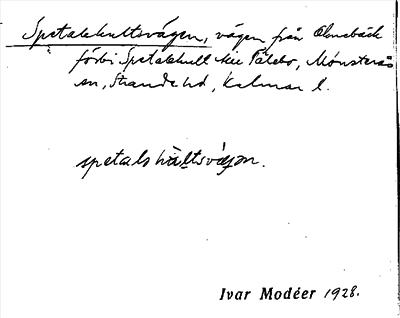 Spetalshultsvägen, vägen från Ålmsbäck
förbi Spetalshult till Påtebo, Mönsterås
sn, Stranda hd, Kalmar l.
spetalshùltsvä́gən.
Ivar Modéer 1928.